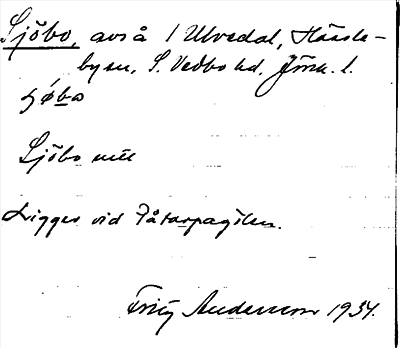 Sjöbo, avs å / Ulvedal, Hässle-
by sn, S. Vedbo hd, Jönk. l.
Sjöbo
Ligger vid Fåtarpagölen.
Fritz Andersson 1934.